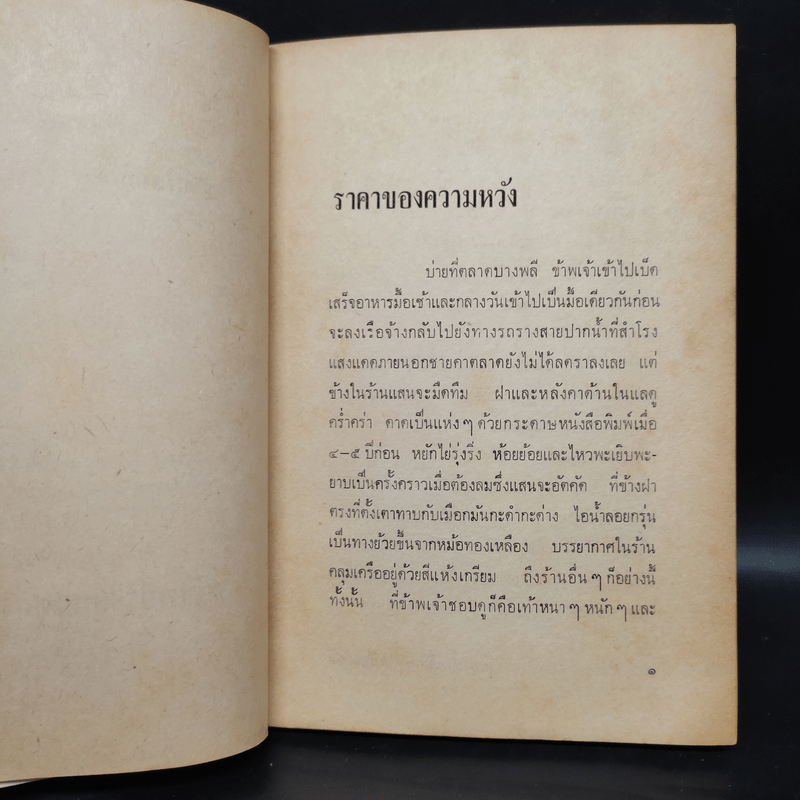 ราคาของความหวัง
บ่ายที่ตลาดบางพลี ข้าพเจ้าเข้าไปเบ็ด
เสร็จอาหารมื้อเช้าและกลางวันเข้าไปเป็นมื้อเดียวกันก่อน
จะลงเรือจ้างกลับไปยังทางรถรางสายปากน้ำที่สำโรง
แสงแดดภายนอกชายคาตลาดยังไม่ได้ลดราลงเลย แต่
ข้างในร้านแสนจะมืดทึม ฝาและหลังคาด้านในแลดู
คร่ำคร่า ดาดเป็นแห่งๆ ด้วยกระดาษหนังสือพิมพ์เมื่อ
๔–๕ ปีก่อน หยักไย่รุ่งริ่ง ห้อยย้อยและไหวพะเยิบพะ-
ยาบเป็นครั้งคราวเมื่อต้องลมซึ่งแสนจะอัตคัด ที่ข้างฝา
ตรงที่ตั้งเตาทาบกับเมือกมันกะดำกะด่าง ไอน้ำลอยกรุ่น
เป็นทางย้วยขึ้นจากหม้อทองเหลือง บรรยากาศในร้าน
คลุมเครืออยู่ด้วยสีแห้งเกรียม ถึงร้านอื่นๆ ก็อย่างนี้
ทั้งนั้น ที่ข้าพเจ้าชอบดูก็คือเท้าหนาๆ หนักๆ และ
๑